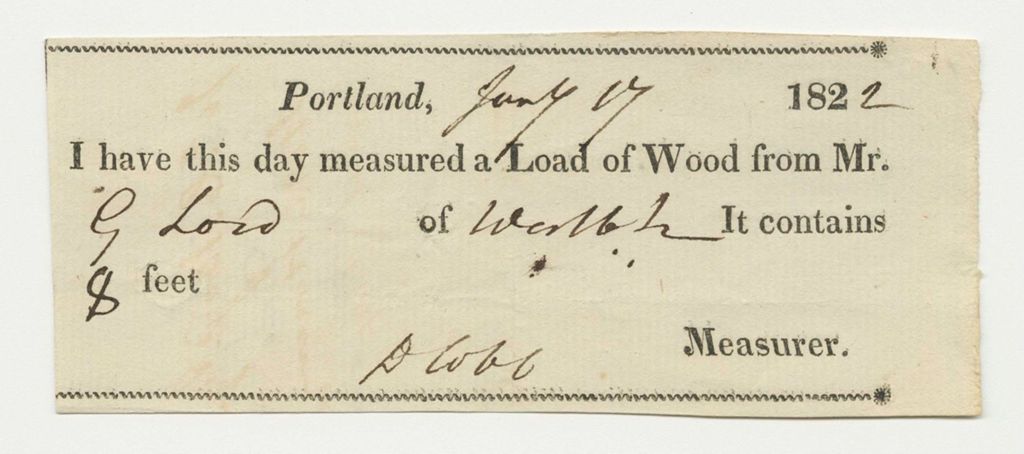 Portland, Jany 17 1822
I have this day measured a Load of Wood from Mr.
G Lord of It contains
8 feet
D Cobb Measurer.